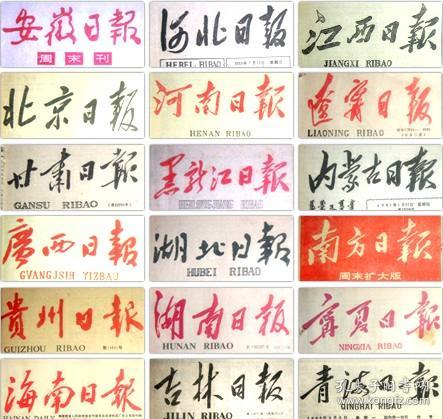 安徽日報
周末刊
河北日报
HEBEI RIBAO
江西日報
JIANGXI RIBAO
北京日報
河南日報
HENAN RIBAO
遼寧日報
LIAONING RIBAO
甘肃日報
GANSU RIBAO
黑龙江日報
HEILONGJIANG RIBAO
内蒙古日報
廣西日報
GVANGJSIH YIZBAU
湖北日報
HUBEI RIBAO
南方日報
周末扩大版
貴州日報
GUIZHOU RIBAO
湖南日报
HUNAN RIBAO
宁夏日報
NINGXIA RIBAO
海南日報
HAINAN DAILY
吉林日报
JILIN RIBAO
青海日報
QINGHAI RIBAO